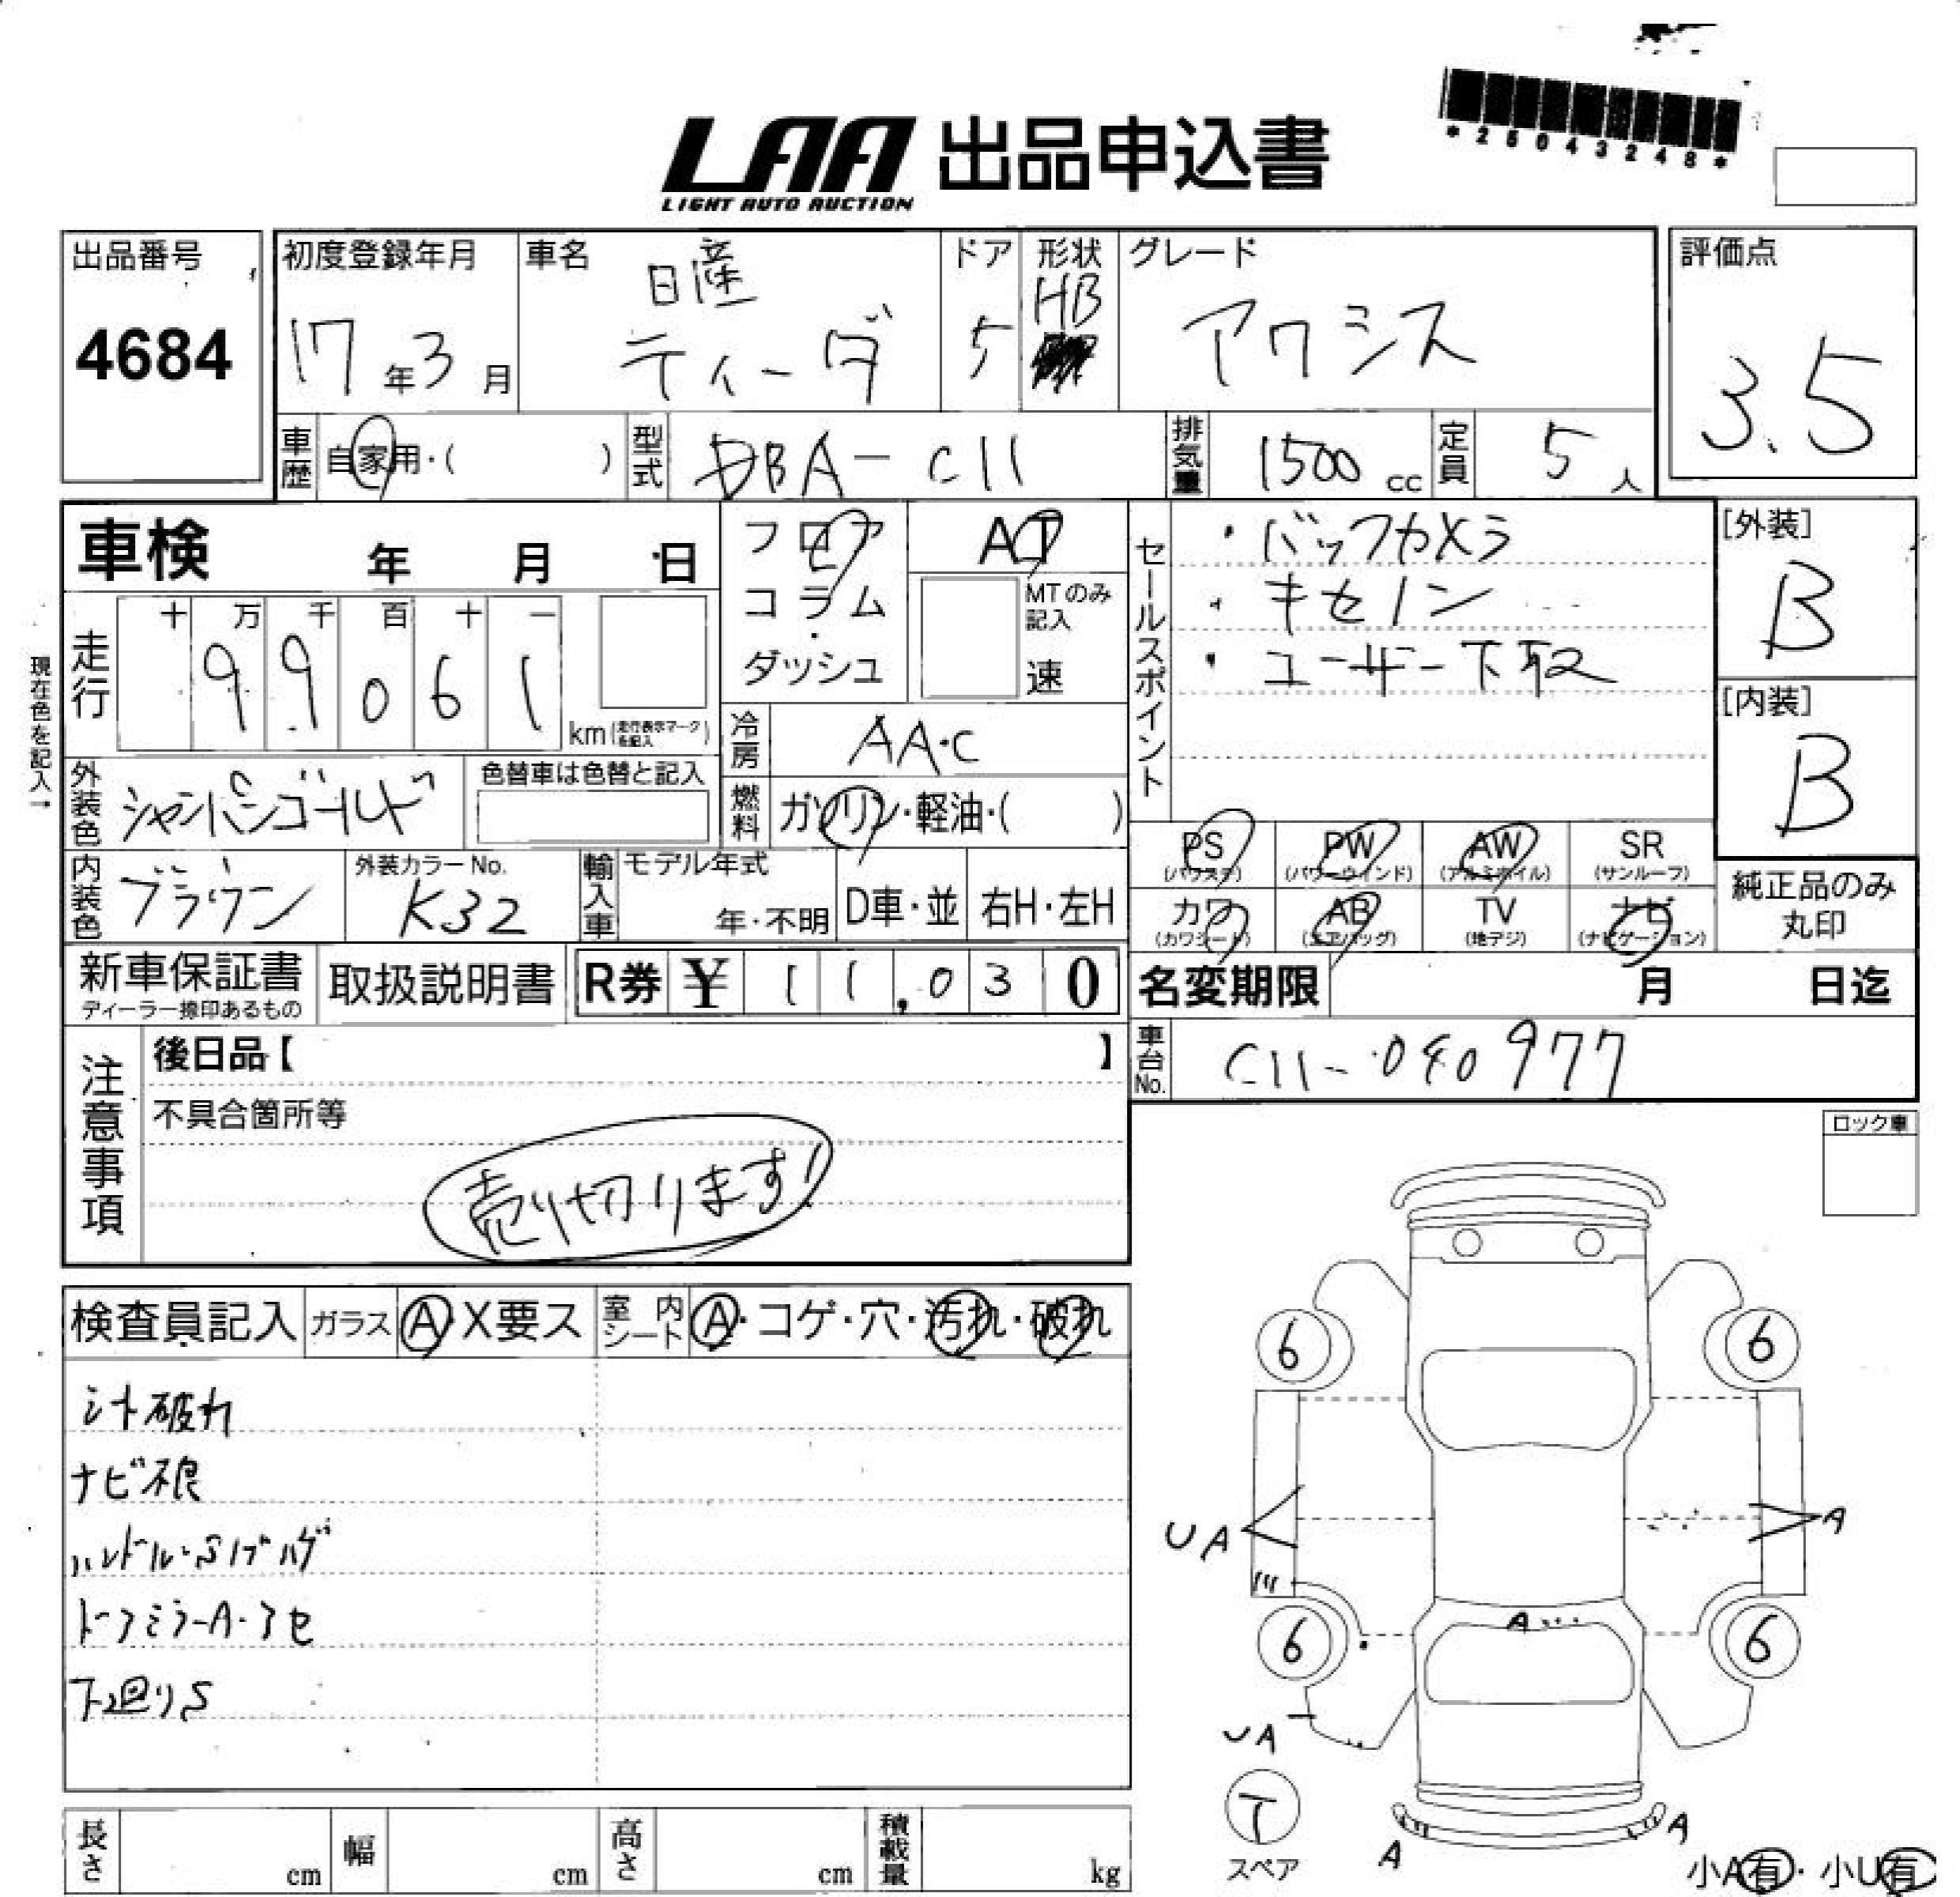 *25043248*
LAA 出品申込書
LIGHT AUTO AUCTION
出品番号
4684
初度登録年月
17年3月
車名
日産
ティーダ
ドア
5
形状
HB
グレード
アクシス
評価点
3.5
車歴
自家用・( )
型式
DBA-C11
排気量
1500cc
定員
5人
車検 年 月 日
フロア
コラム
・
ダッシュ
AT
MTのみ記入
速
セールスポイント
・バックカメラ
・キセノン
・ユーザー下取
[外装]
B
[内装]
B
現在色を記入→
走行
十 万 千 百 十 一
99061
km(走行表示マークを記入)
冷房
AA・C
外装色
シャンパンゴールド
色替車は色替と記入
燃料
ガソリン・軽油・( )
PS
(パワステ)
PW
(パワーウインド)
AW
(アルミホイル)
SR
(サンルーフ)
カワ
(カワシート)
AB
(エアバッグ)
TV
(地デジ)
ナビ
(ナビゲーション)
純正品のみ
丸印
内装色
ブラウン
外装カラーNo.
K32
輸入車
モデル年式
年・不明
D車・並
右H・左H
新車保証書
ディーラー捺印あるもの
取扱説明書
R券 ¥ 11,030
名変期限 月 日迄
車台No.
C11-040977
注意事項
後日品【 】
不具合箇所等
売り切ります!
ロック車
検査員記入
ガラス
A・X要ス
室内シート
A・コゲ・穴・汚れ・破れ
シート破れ
ナビ不良
ドアミラーA・アセ
下回りS
6
6
UA
A
6
6
A
UA
T
スペア
A
A
小A有・小U有
長さ cm
幅 cm
高さ cm
積載量 kg